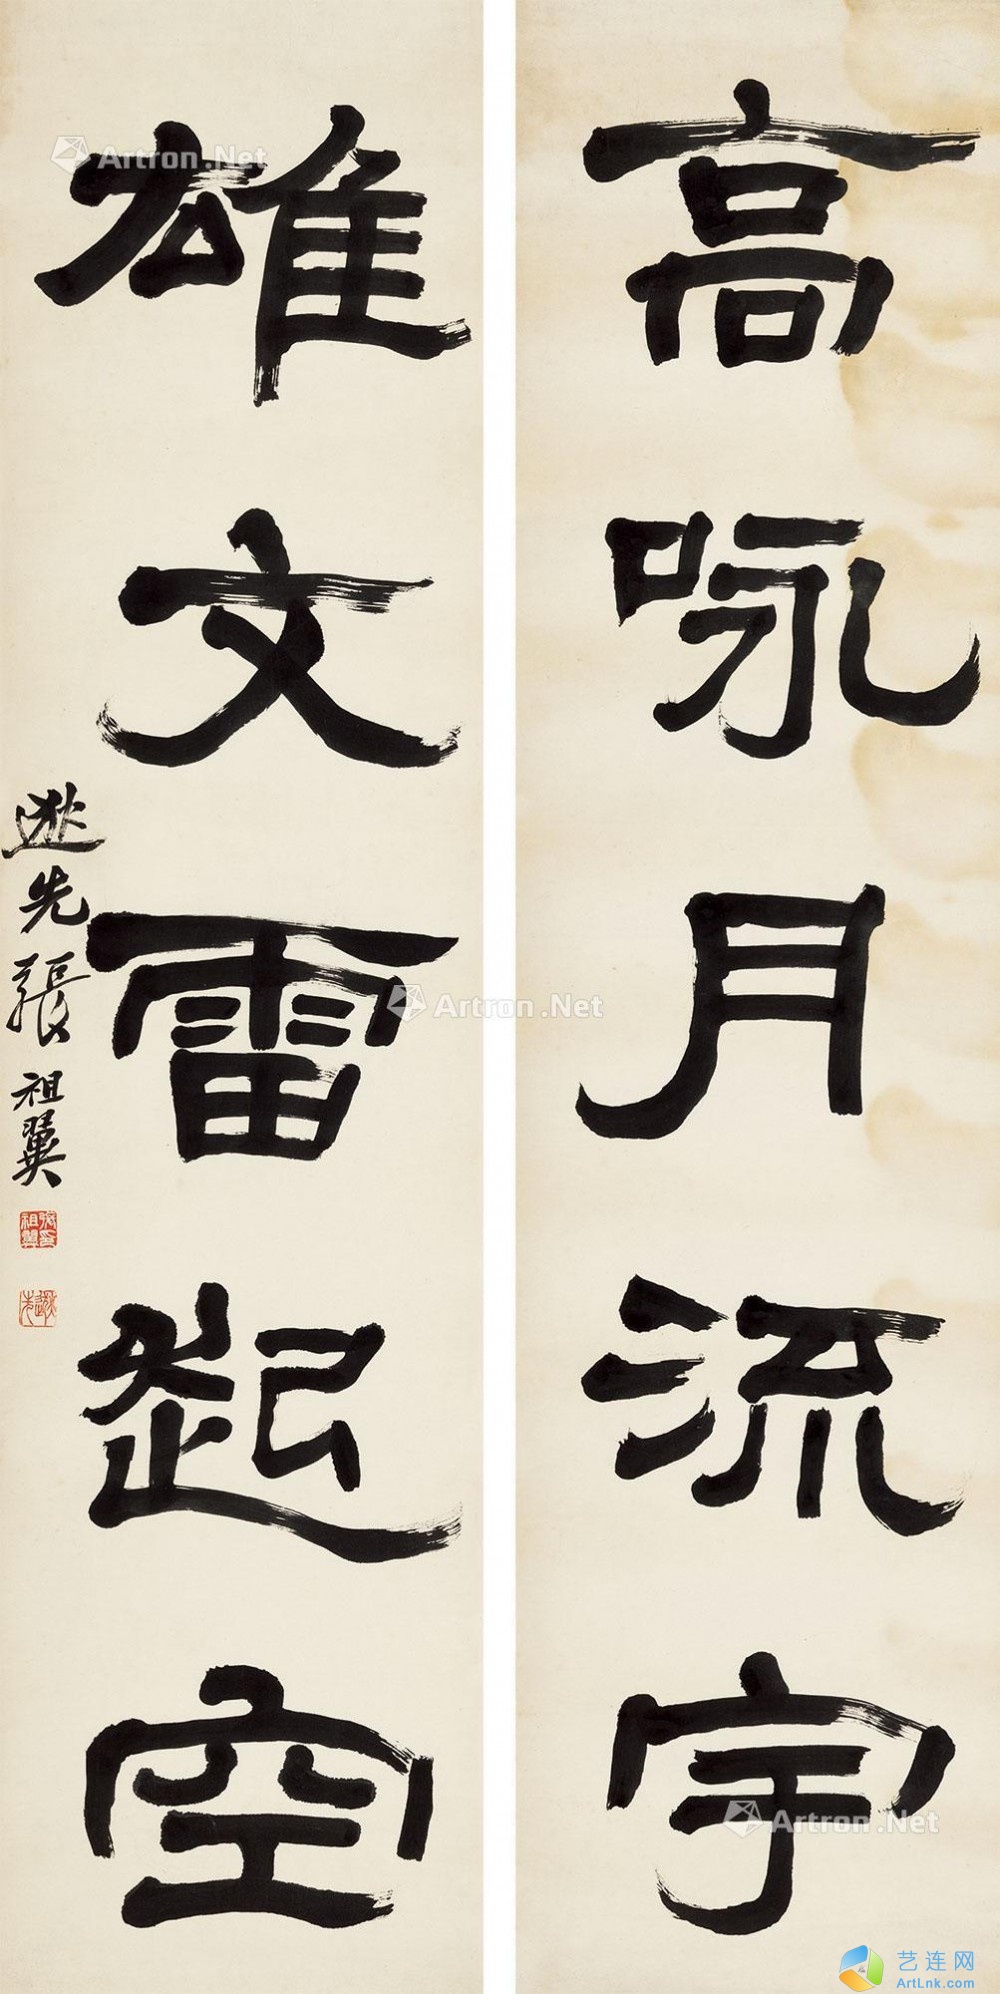 高吟月流宇
雄文雷起空
逖先張祖翼
張祖翼印
逖先
Artron.Net
Artron.Net
Artron.Net
艺连网
ArtLnk.com